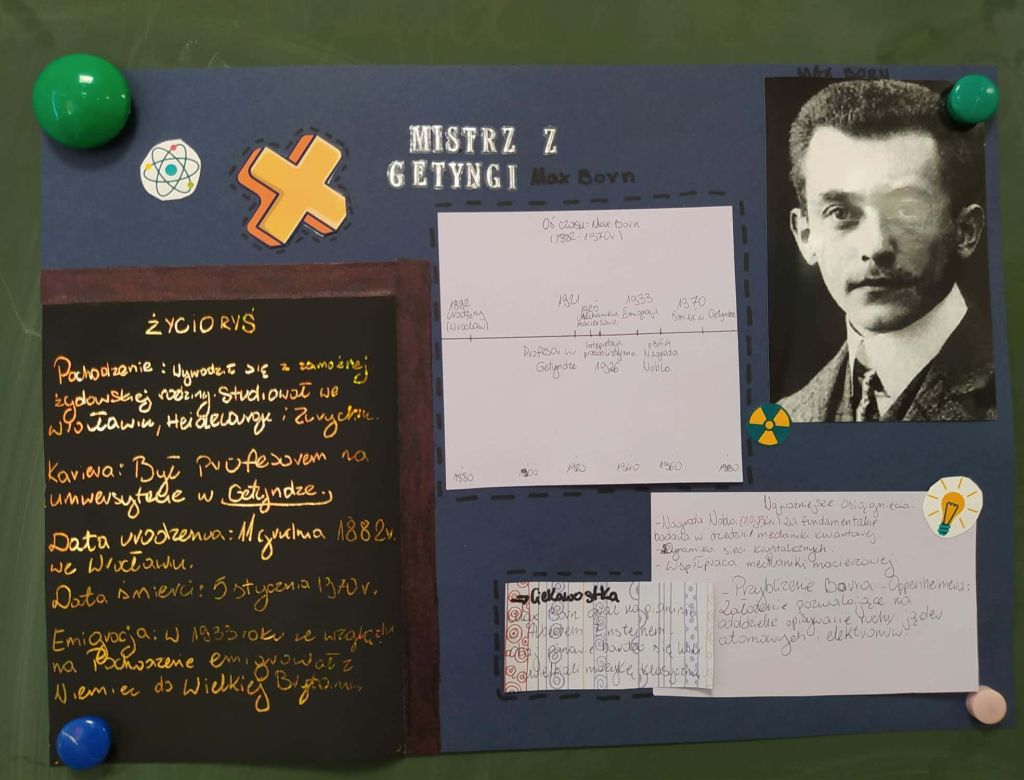 MAX BORN
MISTRZ Z
GETYNGI Max Born
ŻYCIORYŚ
Pochodzenie: Wywodził się z zamożnej
żydowskiej rodziny. Studiował we
wrocławiu, Heidelbergu i Zurychu.
Kariera: Był Profesorem na
uniwersytecie w Getyndze,
Data urodzenia: 11 grudnia 1882r.
we Wrocławiu.
Data śmierci: 5 stycznia 1970r.
Emigracja: w 1933 roku ze względu
na Pochodzenie emigrował z
Niemiec do Wielkiej Brytanii
Oś czasu - Max Born
(1882-1970r.)
1882
Urodziny
(Wrocław)
1921
Profesor w
Getyndze
1925
Mechanika
macierzowa
Interpretacja
probabilistyczna
1926
1933
Emigracja
Nagroda
Nobla
1970
Śmierć w Getyndze
1880 1900 1920 1940 1960 1980
Najważniejsze osiągnięcia:
- Nagroda Nobla za fundamentalne
badania w dziedzinie mechaniki kwantowej.
- Dynamika sieci krystalicznych.
- Współpraca mechaniki macierzowej.
- Przybliżenie Borna-Oppenheimera:
Założenie pozwalające na
oddzielne opisywanie ruchu jąder
atomowych i elektronów.
→ Ciekawostka
Max Born
Albertem Einsteinem.
bardzo się lubili
muzykę klasyczną